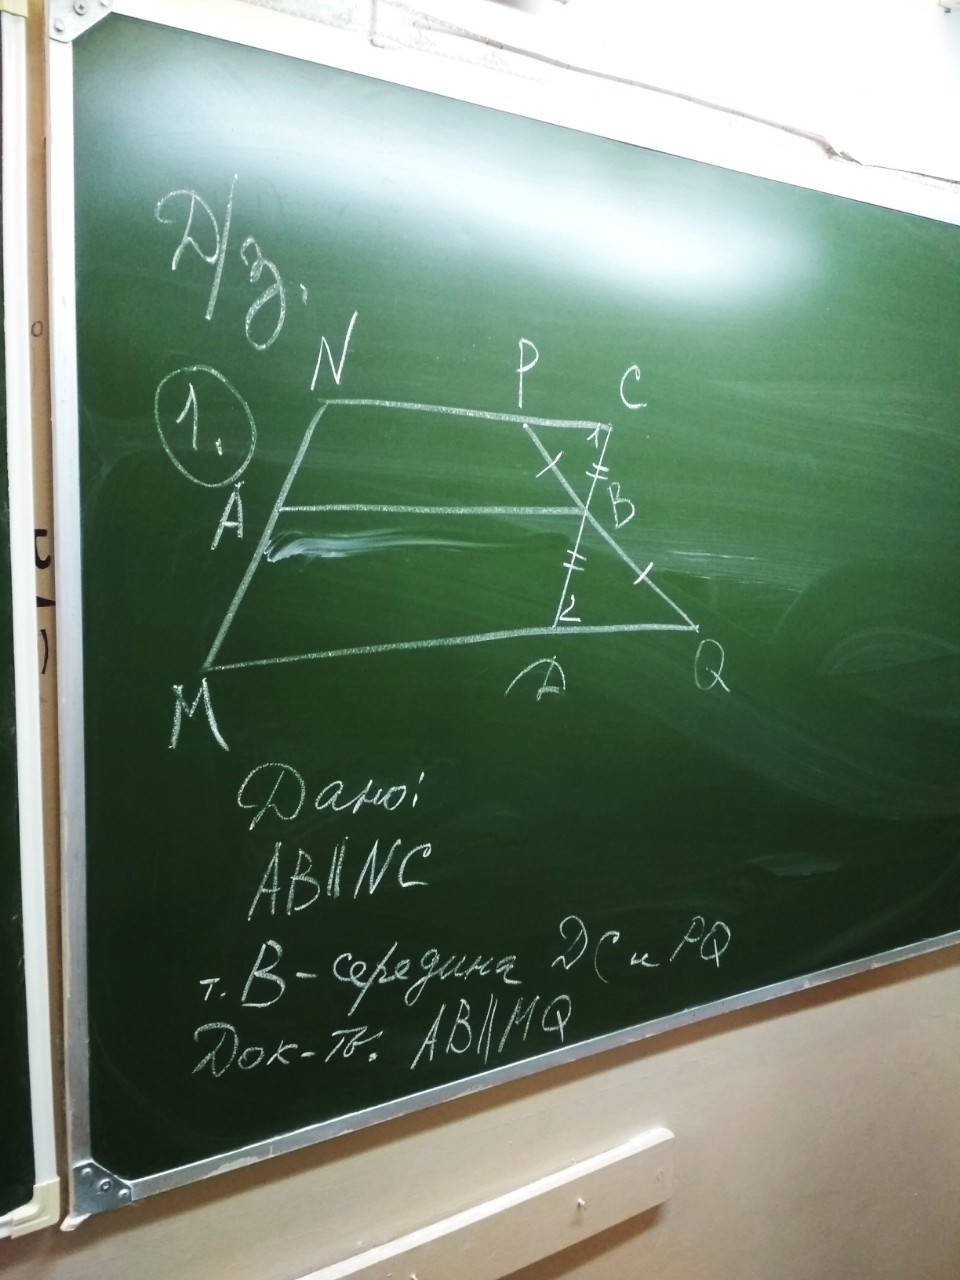 Д/з.
1.
N
P
C
1
A
B
2
M
D
Q
Дано:
AB||NC
т. B-середина DC и PQ
Док-ть: AB||MQ